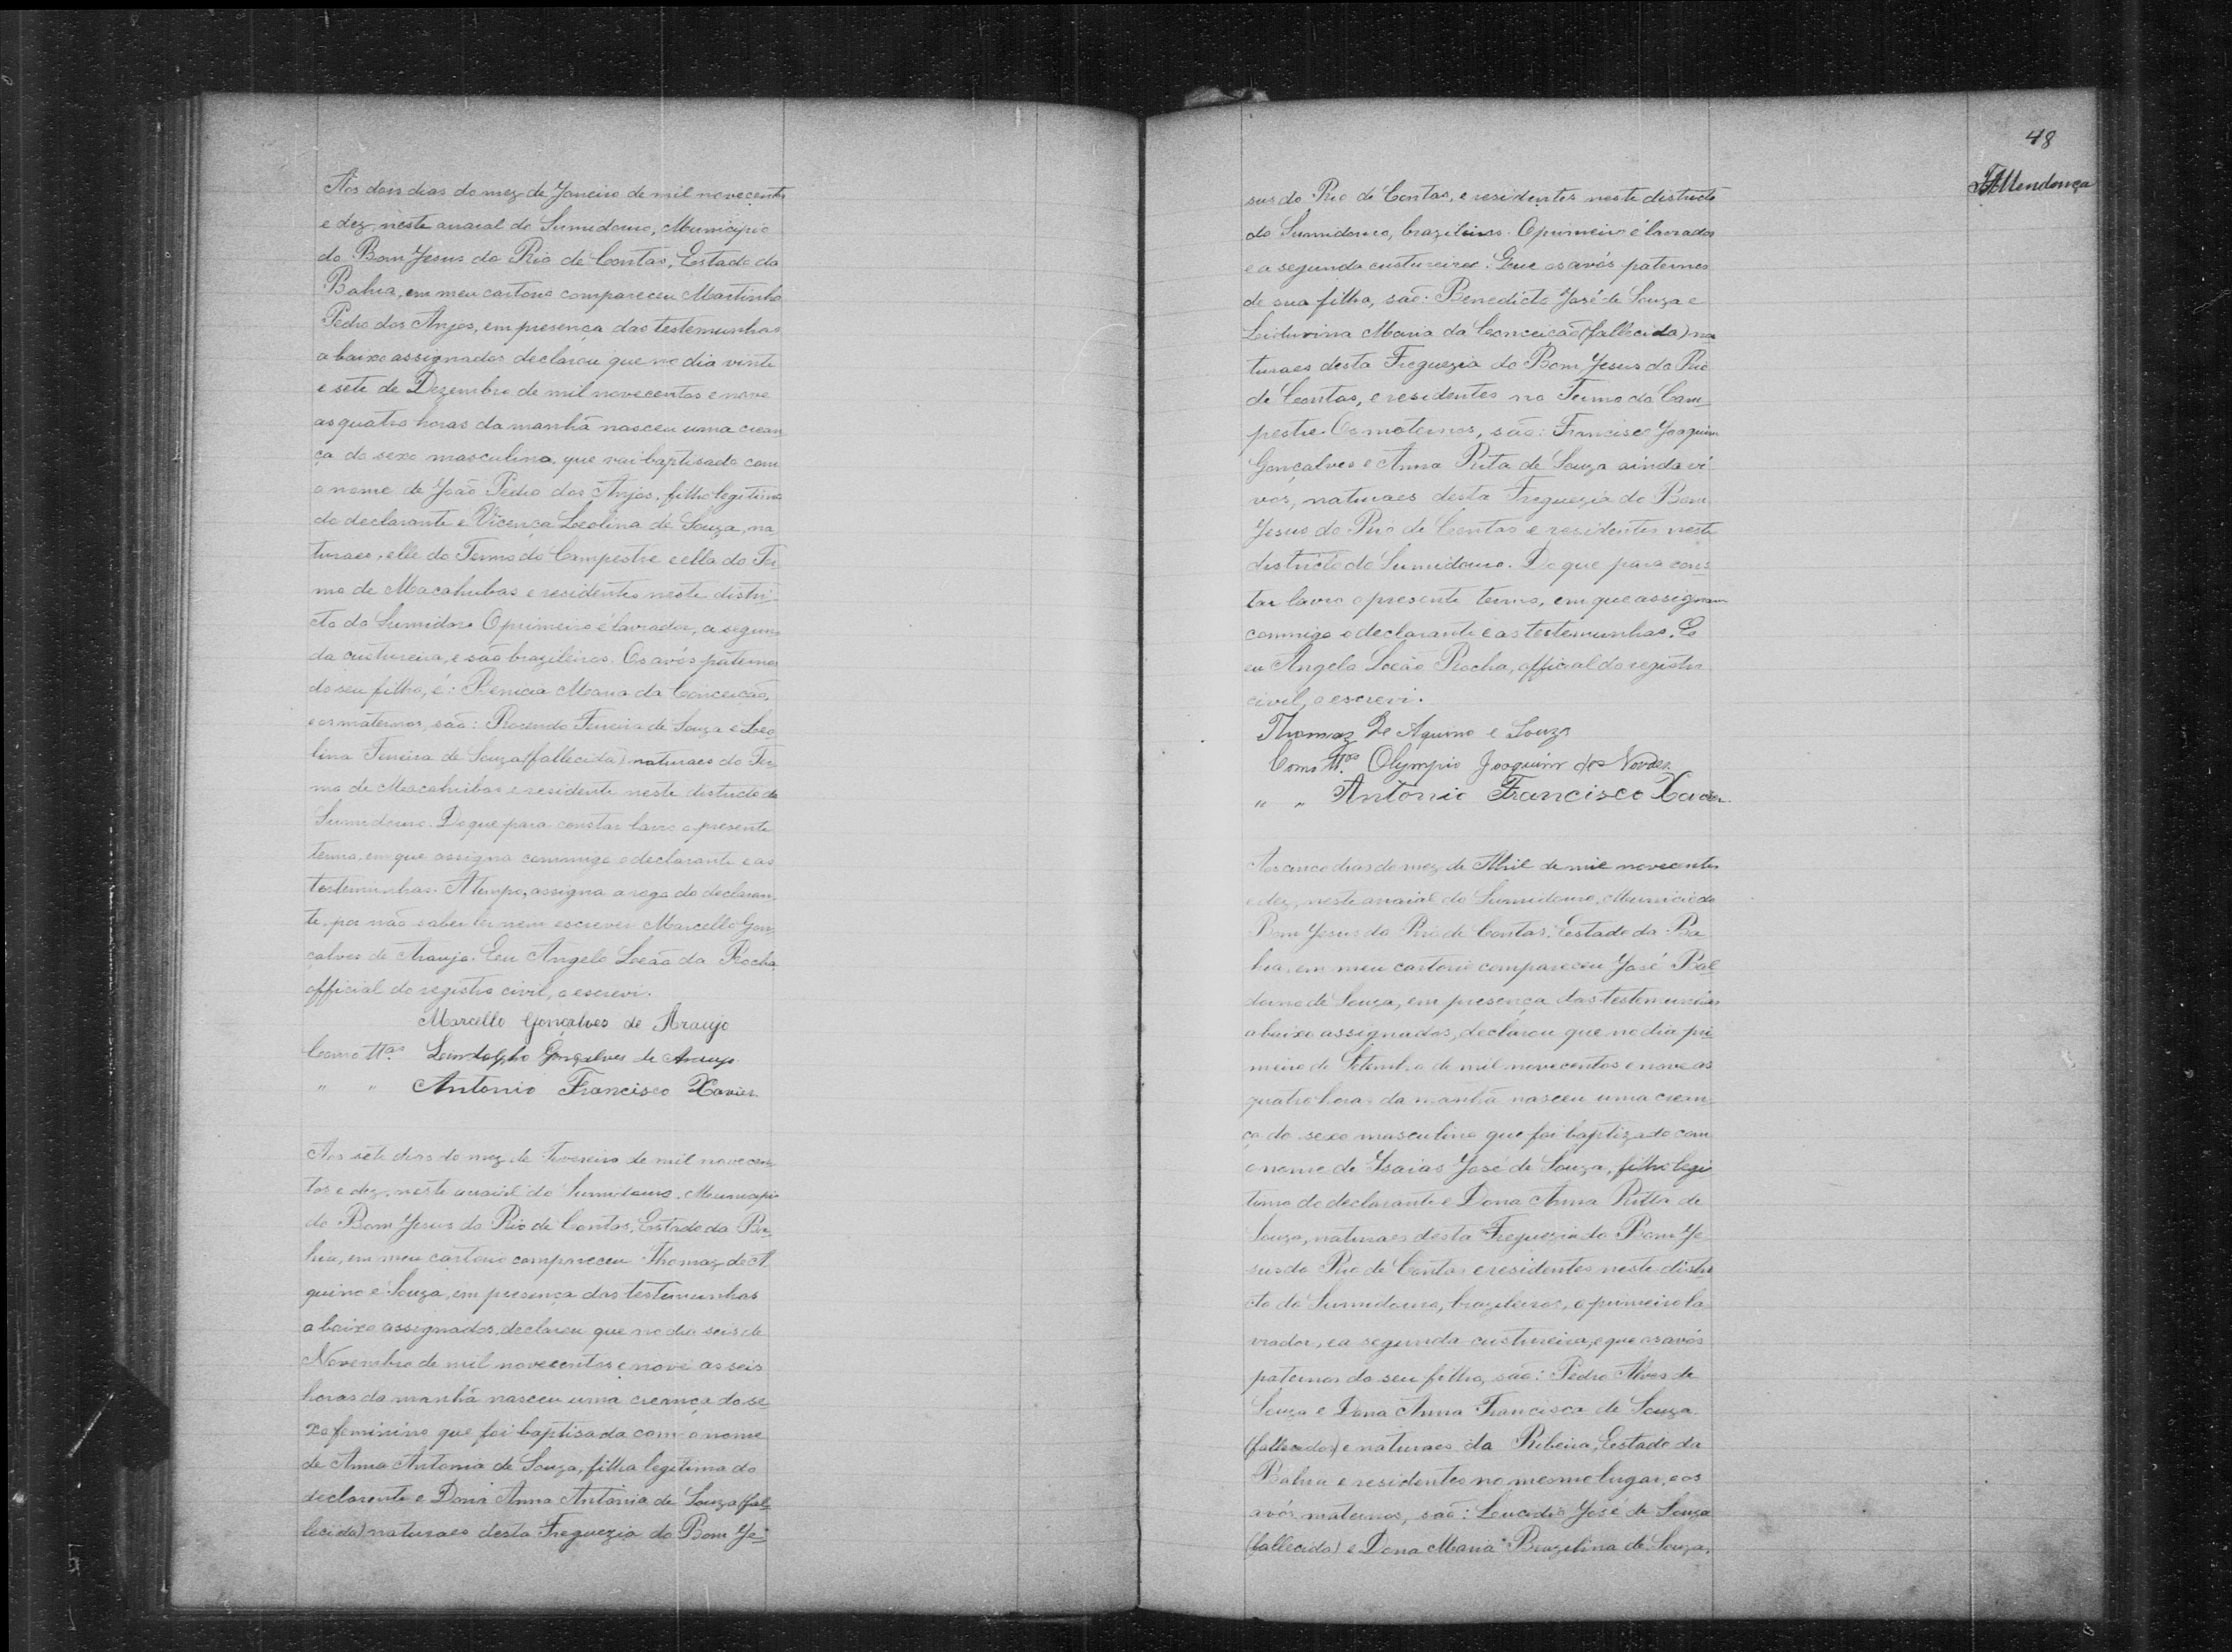 Aos dois dias do mez de Janeiro de mil novecentos
e dez, neste arraial do Sumidouro, Municipio
do Bom Jesus do Rio de Contas, Estado da
Bahia, em meu cartorio compareceu Martinho
Pedro dos Anjos, em presença das testemunhas
abaixo assignados declarou que no dia vinte
e sete de Dezembro de mil novecentos e nove
as quatro horas da manhã nasceu uma crean
ça do sexo masculino, que vai baptisado com
o nome de João Pedro dos Anjos, filho legitimo
do declarante e Vicença Leolina de Souza, na
turaes, elle do Termo do Campestre e ella do Ter
mo de Macahubas e residentes neste distri-
cto do Sumidoro O primeiro é lavrador, a segun
da custureira, e são brazileiros. Os avós paternos
do seu filho, é: Benicia Maria da Conceição,
e os maternos, são: Rocendo Ferreira de Souza e Leo
lina Ferreira de Souza (fallecida) naturaes do Ter
mo de Macahubas e residente neste districto do
Sumidouro. Do que para constar lavro o presente
termo, em que assigna commigo o declarante e as
testemunhas. A tempo, assigna a rogo do declaran
te, por não saber ler nem escrever Marcello Gon
çalves de Araujo. Eu Angelo Leeão da Rocha
official do registro civil, o escrevi.
Marcello Gonçalves de Araujo
Como ttas Landolpho Gonçalves de Araujo
" " Antonio Francisco Xavier
Aos sete dias do mez de Fevereiro de mil novecen
tos e dez, neste arraial do Sumidouro, Municipio
do Bom Jesus do Rio de Contas, Estado da Ba
hia, em meu cartorio compareceu Thomaz de A
quino e Souza, em presença das testemunhas
abaixo assignados, declarou que no dia seis de
Novembro de mil novecentos e nove as seis
horas da manhã nasceu uma creança do se
xo feminino que foi baptisada com o nome
de Anna Antonia de Souza, filha legitima do
declarante e Dona Anna Antonia de Souza (fal
lecida) naturaes desta Freguezia do Bom Je-
48
Mendonça
sus do Rio de Contas, e residentes neste districto
do Sumidouro, brazileiros. O primeiro é lavrador
e a segunda custureira. Que os avós paternos
de sua filha, são: Benedicto José de Souza e
Maria da Conceição (fallecida) na
turaes desta Freguezia do Bom Jesus do Rio
de Contas, e residentes no Termo do Cam-
pestre. Os maternos, são: Francisco Joaquim
Gonçalves e Anna Rita de Souza ainda vi
vos, naturaes desta Freguezia do Bom
Jesus do Rio de Contas e residentes neste
districto do Sumidouro. Do que para cons
tar lavro o presente termo, em que assignam
commigo o declarante e as testemunhas. E
eu Angelo Leeão Rocha, official do registro
civil, o escrevi.
Thomaz de Aquino e Souza
Como ttas Olympio Joaquim de Novaes
" " Antonio Francisco Xavier
Aos cinco dias do mez de Abril de mil novecentos
e dez, neste arraial do Sumidouro, Municio do
Bom Jesus do Rio de Contas, Estado da Ba
hia, em meu cartorio compareceu José Bal
doino de Souza, em presença das testemunhas
abaixo assignados, declarou que no dia pri
meiro de Setembro de mil novecentos e nove as
quatro horas da manhã nasceu uma crean
ça do sexo masculino que foi baptizado com
o nome de Isaias José de Souza, filho legi
timo do declarante e Dona Anna Ritta de
Souza, naturaes desta Freguezia do Bom Je
sus do Rio de Contas e residentes neste distri
cto do Sumidouro, brazileiros, o primeiro la
vrador, e a segunda custureira, e que os avós
paternos do seu filho, são: Pedro Alves de
Souza e Dona Anna Francisca de Souza
(fallecidos) e naturaes da Ribeira, Estado da
Bahia e residentes no mesmo lugar, e os
avós maternos, são: Leucadio José de Souza
(fallecido) e Dona Maria Brazilina de Souza,